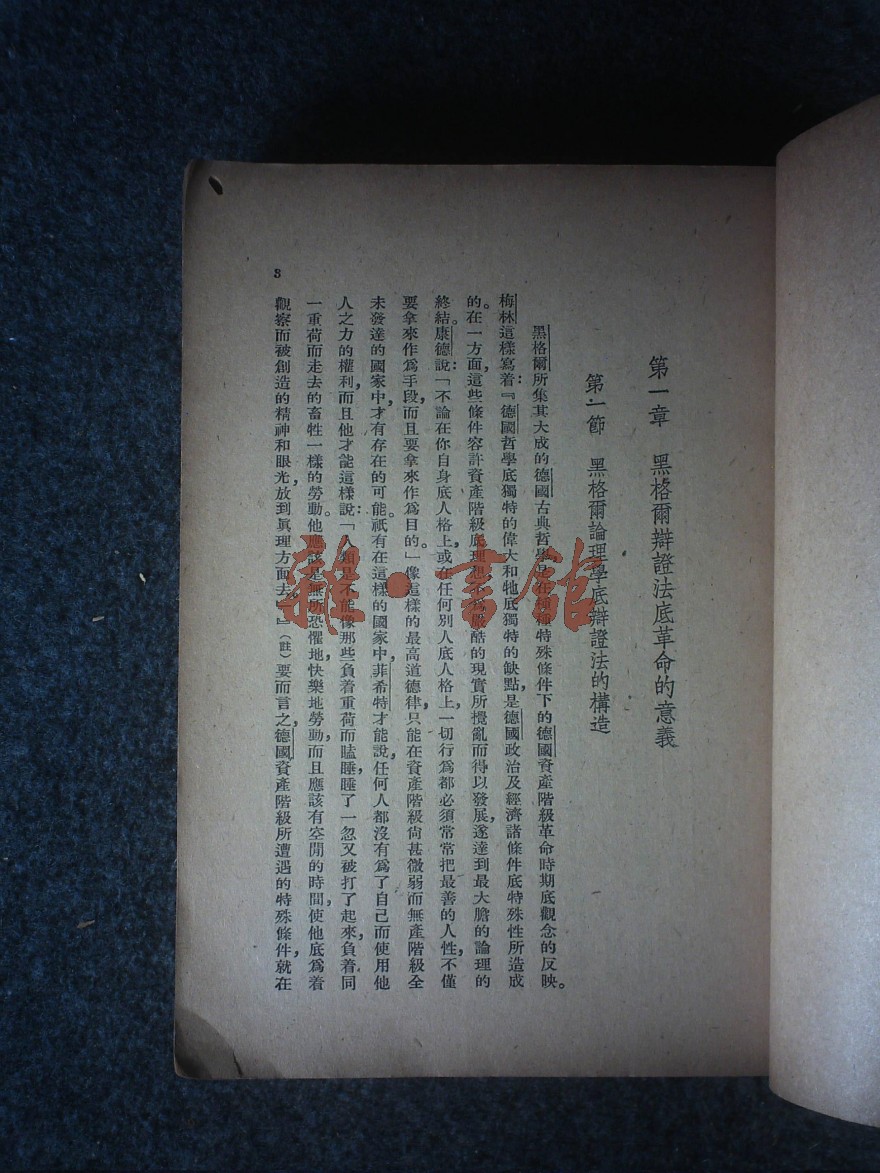 第一章 黑格爾辯證法底革命的意義
第一節 黑格爾論理學底辯證法的構造
黑格爾所集其大成的德國古典哲學是在種種特殊條件下的德國資產階級革命時期底觀念的反映。
梅林這樣寫着：『德國哲學底獨特的偉大和牠底獨特的缺點，是德國政治及經濟諸條件底特殊性所造成
的。在一方面，這些條件容許資產階級底理想不爲嚴酷的現實所攪亂而得以發展，遂達到最大膽的論理的
終結。康德說：「不論在你自身底人格上，或在任何別人底人格上，一切行爲都必須常常把最善的人性，不僅
要拿來作爲手段，而且要拿來作爲目的。」像這樣的最高道德律，只能在資產階級尙甚微弱而無產階級全
未發達的國家中，才有存在的可能。祇有在這樣的國家中，菲希特才能說，任何人都沒有爲了自己而使用他
人之力的權利，而且他才能這樣說：「人類是不能像那些負着重荷而瞌睡，睡了一忽又被打了起來，負着同
一重荷而走去的畜牲一樣的勞動。他應該是無所恐懼地快樂地勞動，而且應該有空閒的時間，使他底爲着
觀察而被創造的精神和眼光，放到眞理方面去。」』（註）要而言之，德國資產階級所遭遇的特殊條件，就在
3
雜·書館